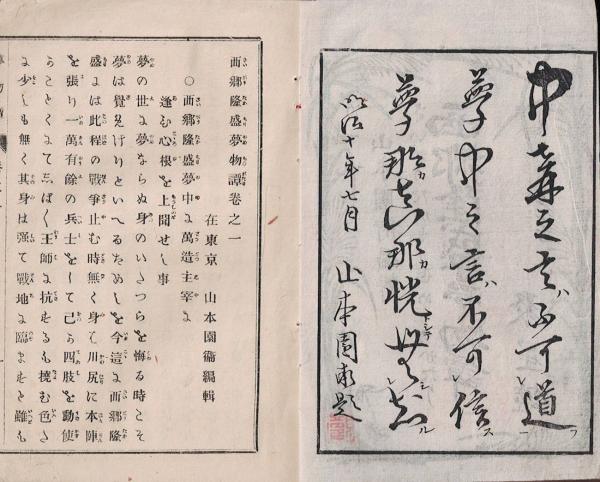 中冓之言不可道
夢中之言不可信
夢那真那恍
明治十年七月 山本園衛題
西郷隆盛夢物譚卷之一
在東京 山本園衞編輯
〇西郷隆盛夢中に萬造主宰に
逢ひ心根を上聞せし事
夢の世に夢ならぬ身のいたつらを悔る時こそ
夢は覺めけりといへるためしを今這に西郷隆
盛には此程の戰爭止む時無く身は川尻に本陣
を張り一萬有餘の兵士をして己ら四肢を動使
ることくにてしばしば王師に抗せるも撓む色さ
に少しも無く其身は强て戰地に臨ますと雖も